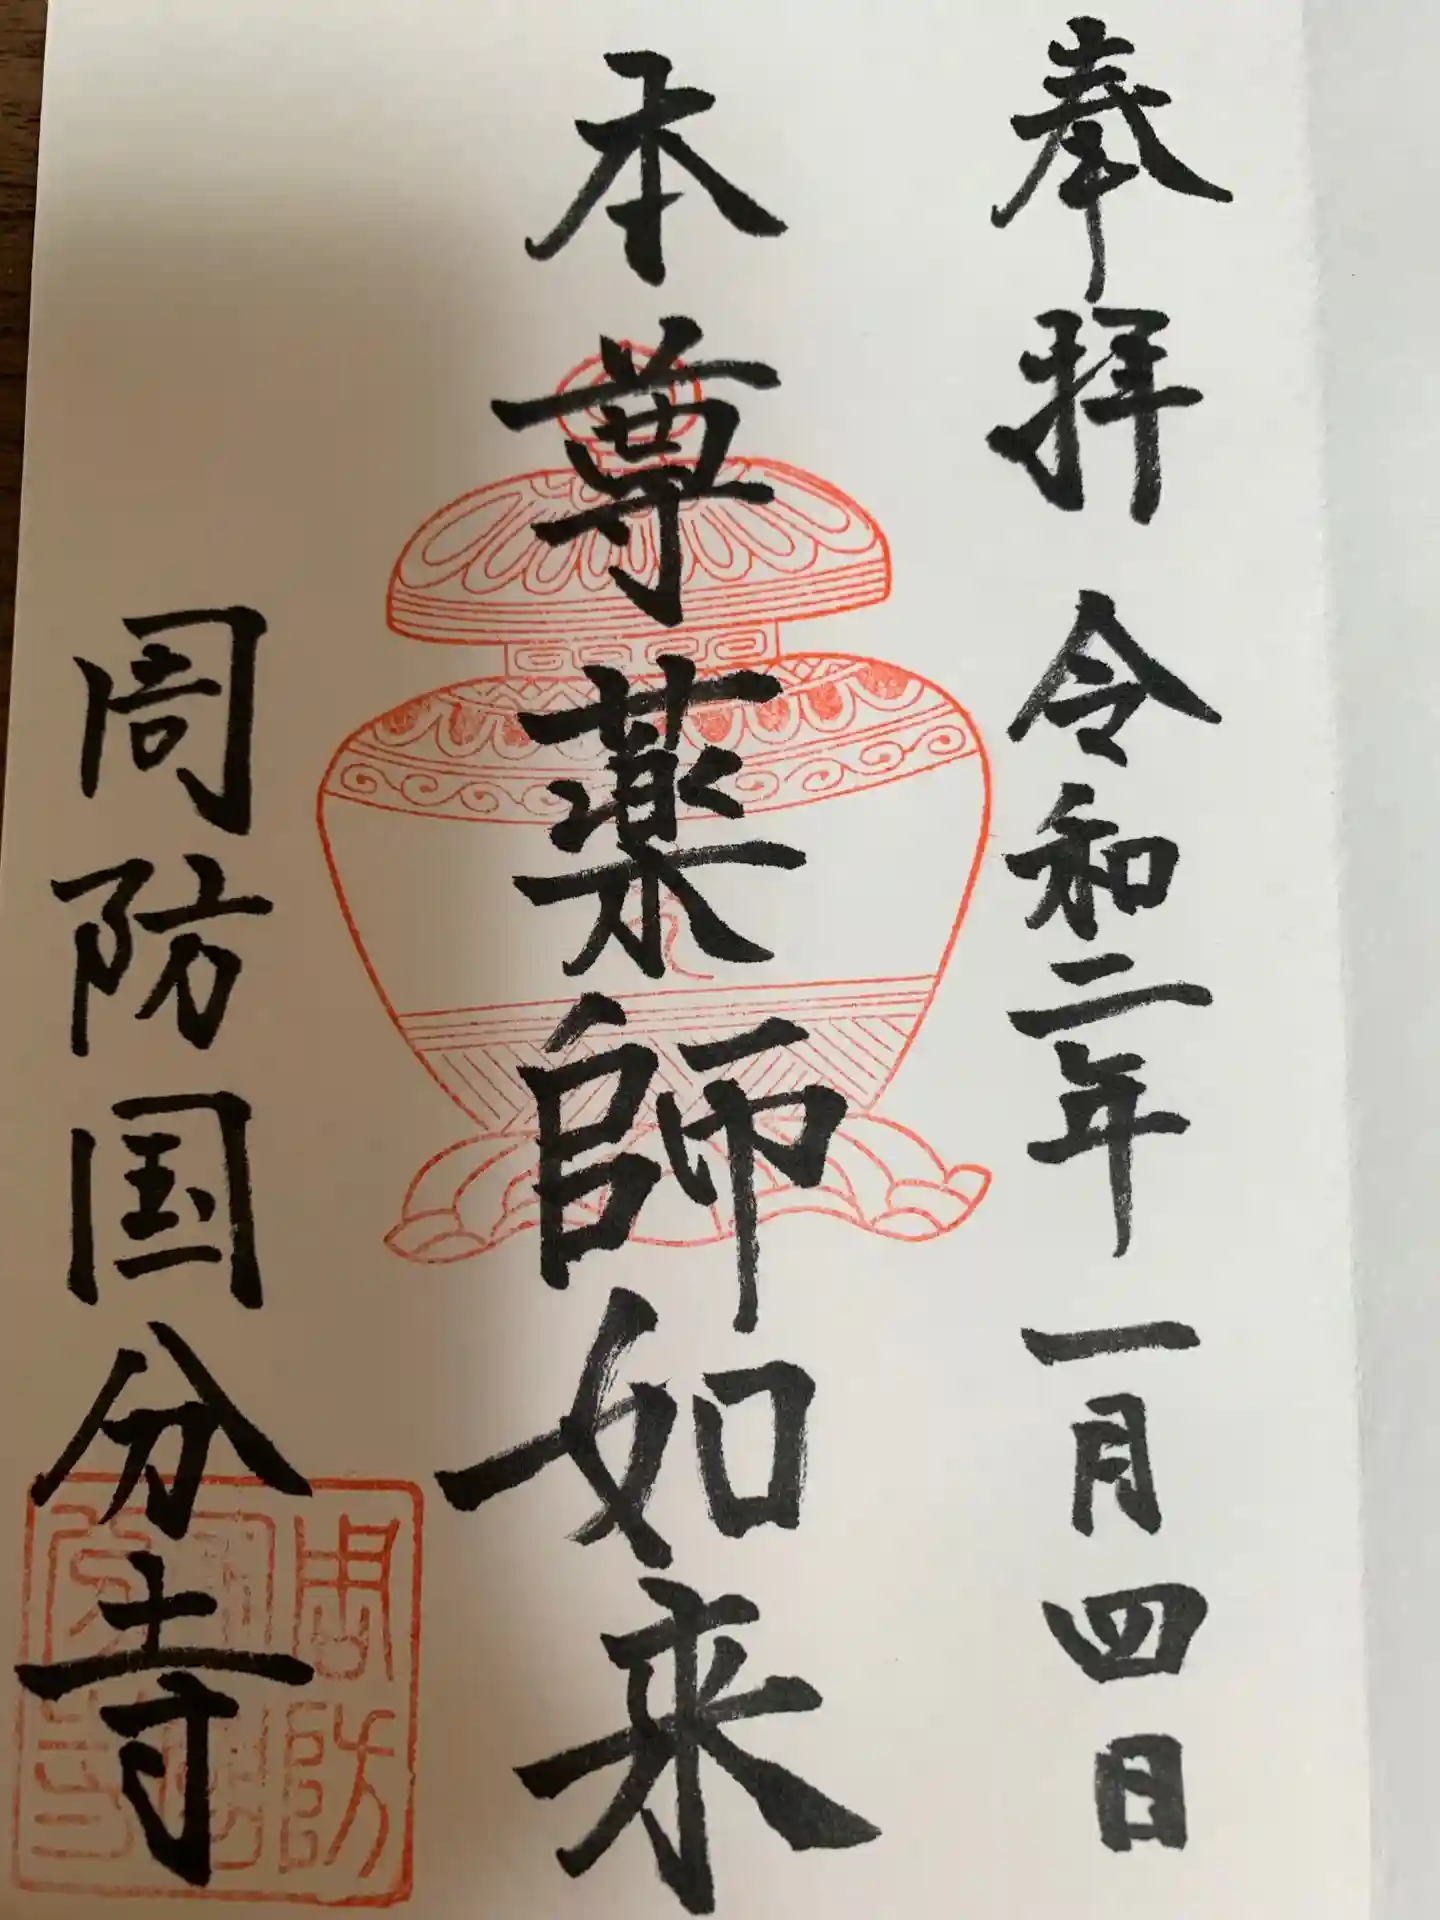 奉拝 令和二年一月四日
本尊薬師如来
周防国分寺
周防